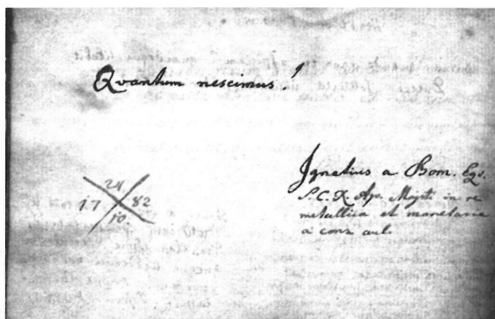 Quantum nescimus!
24
17 82
10.
Ignatius a Born. Eqs.
S. C. R. Ap. Majti in re
metallica et monetaria
a cons. aul.